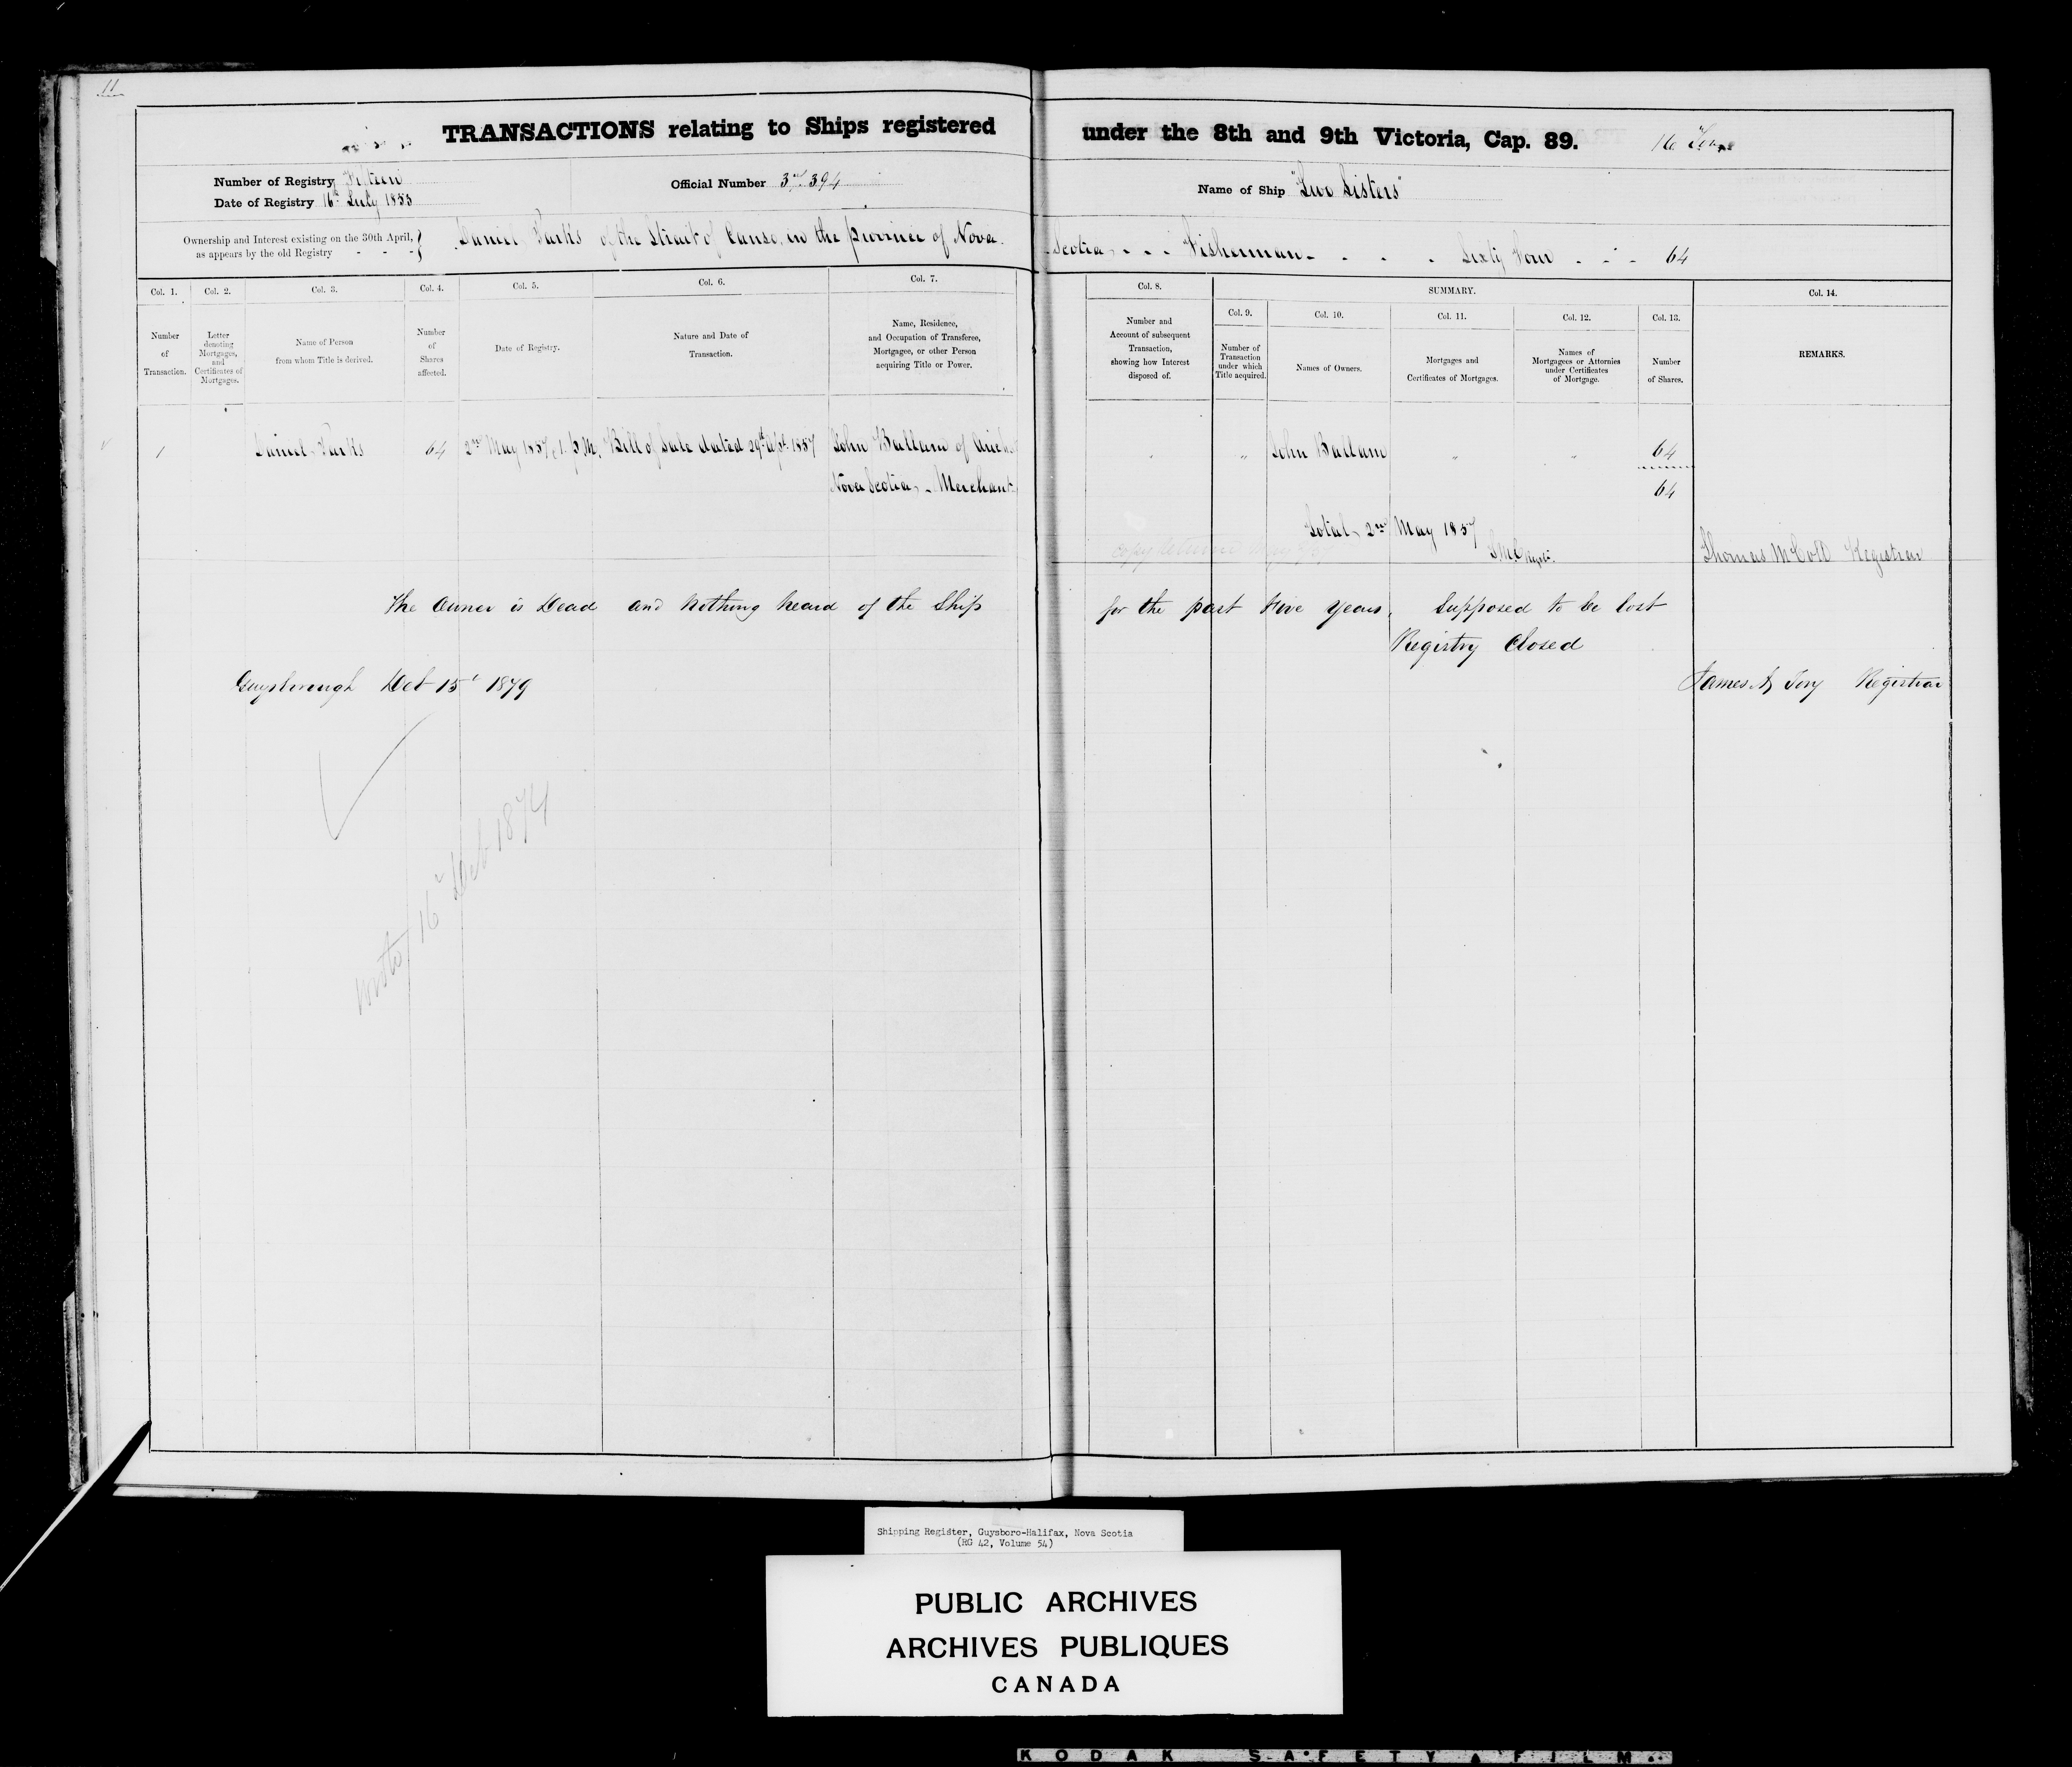 11
TRANSACTIONS relating to Ships registered under the 8th and 9th Victoria, Cap. 89. 16 Tons
Number of Registry Fifteen
Official Number 37.394
Name of Ship "Two Sisters"
Date of Registry 16th July 1855
Ownership and Interest existing on the 30th April,
as appears by the old Registry - - -
Daniel Parks of the Strait of Canso, in the province of Nova Scotia, - - - Fisherman - - - - Sixty Four - - - 64
Col. 1. Col. 2. Col. 3. Col. 4. Col. 5. Col. 6. Col. 7. Col. 8. SUMMARY. Col. 14.
Col. 9. Col. 10. Col. 11. Col. 12. Col. 13.
Number of Transaction.
Letter denoting Mortgages, and Certificates of Mortgages.
Name of Person from whom Title is derived.
Number of Shares affected.
Date of Registry.
Nature and Date of Transaction.
Name, Residence, and Occupation of Transferee, Mortgagee, or other Person acquiring Title or Power.
Number and Account of subsequent Transaction, showing how Interest disposed of.
Number of Transaction under which Title acquired.
Names of Owners.
Mortgages and Certificates of Mortgages.
Names of Mortgagees or Attornies under Certificates of Mortgage.
Number of Shares.
REMARKS.
1 Daniel Parks 64 2nd May 1857, 1. p.M. Bill of Sale dated 29th Apl. 1857 John Ballam of " " John Ballam " " 64
Nova Scotia, - Merchant 64
Total, 2nd May 1857
copy returned May
Thomas M Cutt Registrar
The Owner is Dead and nothing heard of the Ship for the past Five years, Supposed to be lost
Registry Closed
Guysborough Deb 15' 1879 James A Tory Registrar
16 1874
Shipping Register, Guysboro-Halifax, Nova Scotia
(RG 42, Volume 54)
PUBLIC ARCHIVES
ARCHIVES PUBLIQUES
CANADA
KODAK SAFETY FILM